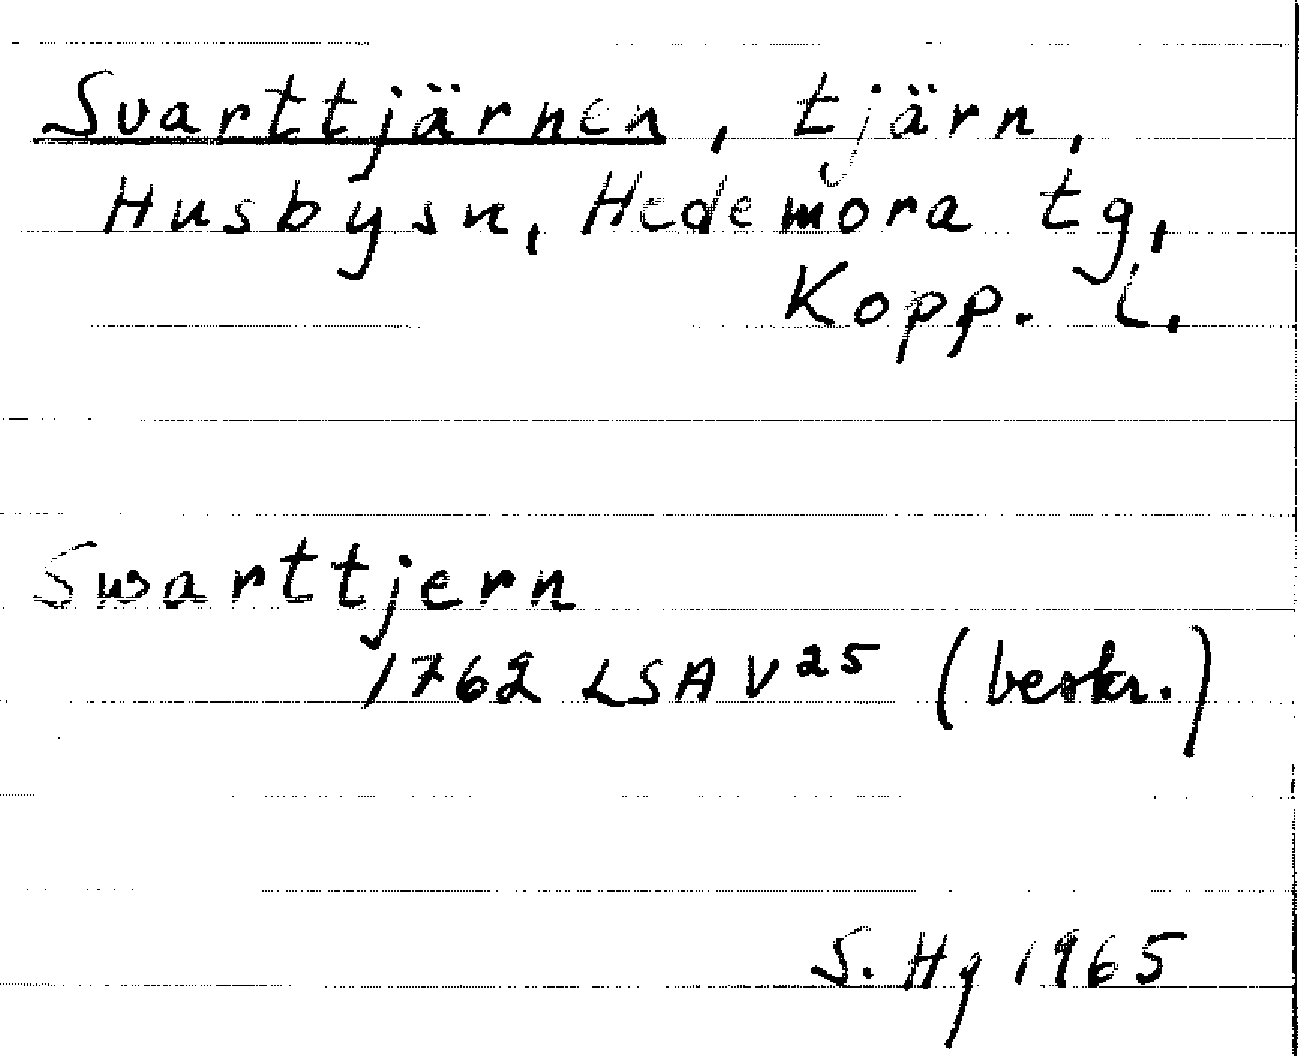 Svarttjärnen, tjärn,
Husby sn, Hedemora tg,
Kopp. L.
Swarttjern
1762 LSA V 25 (beskr.)
S. Hg 1965